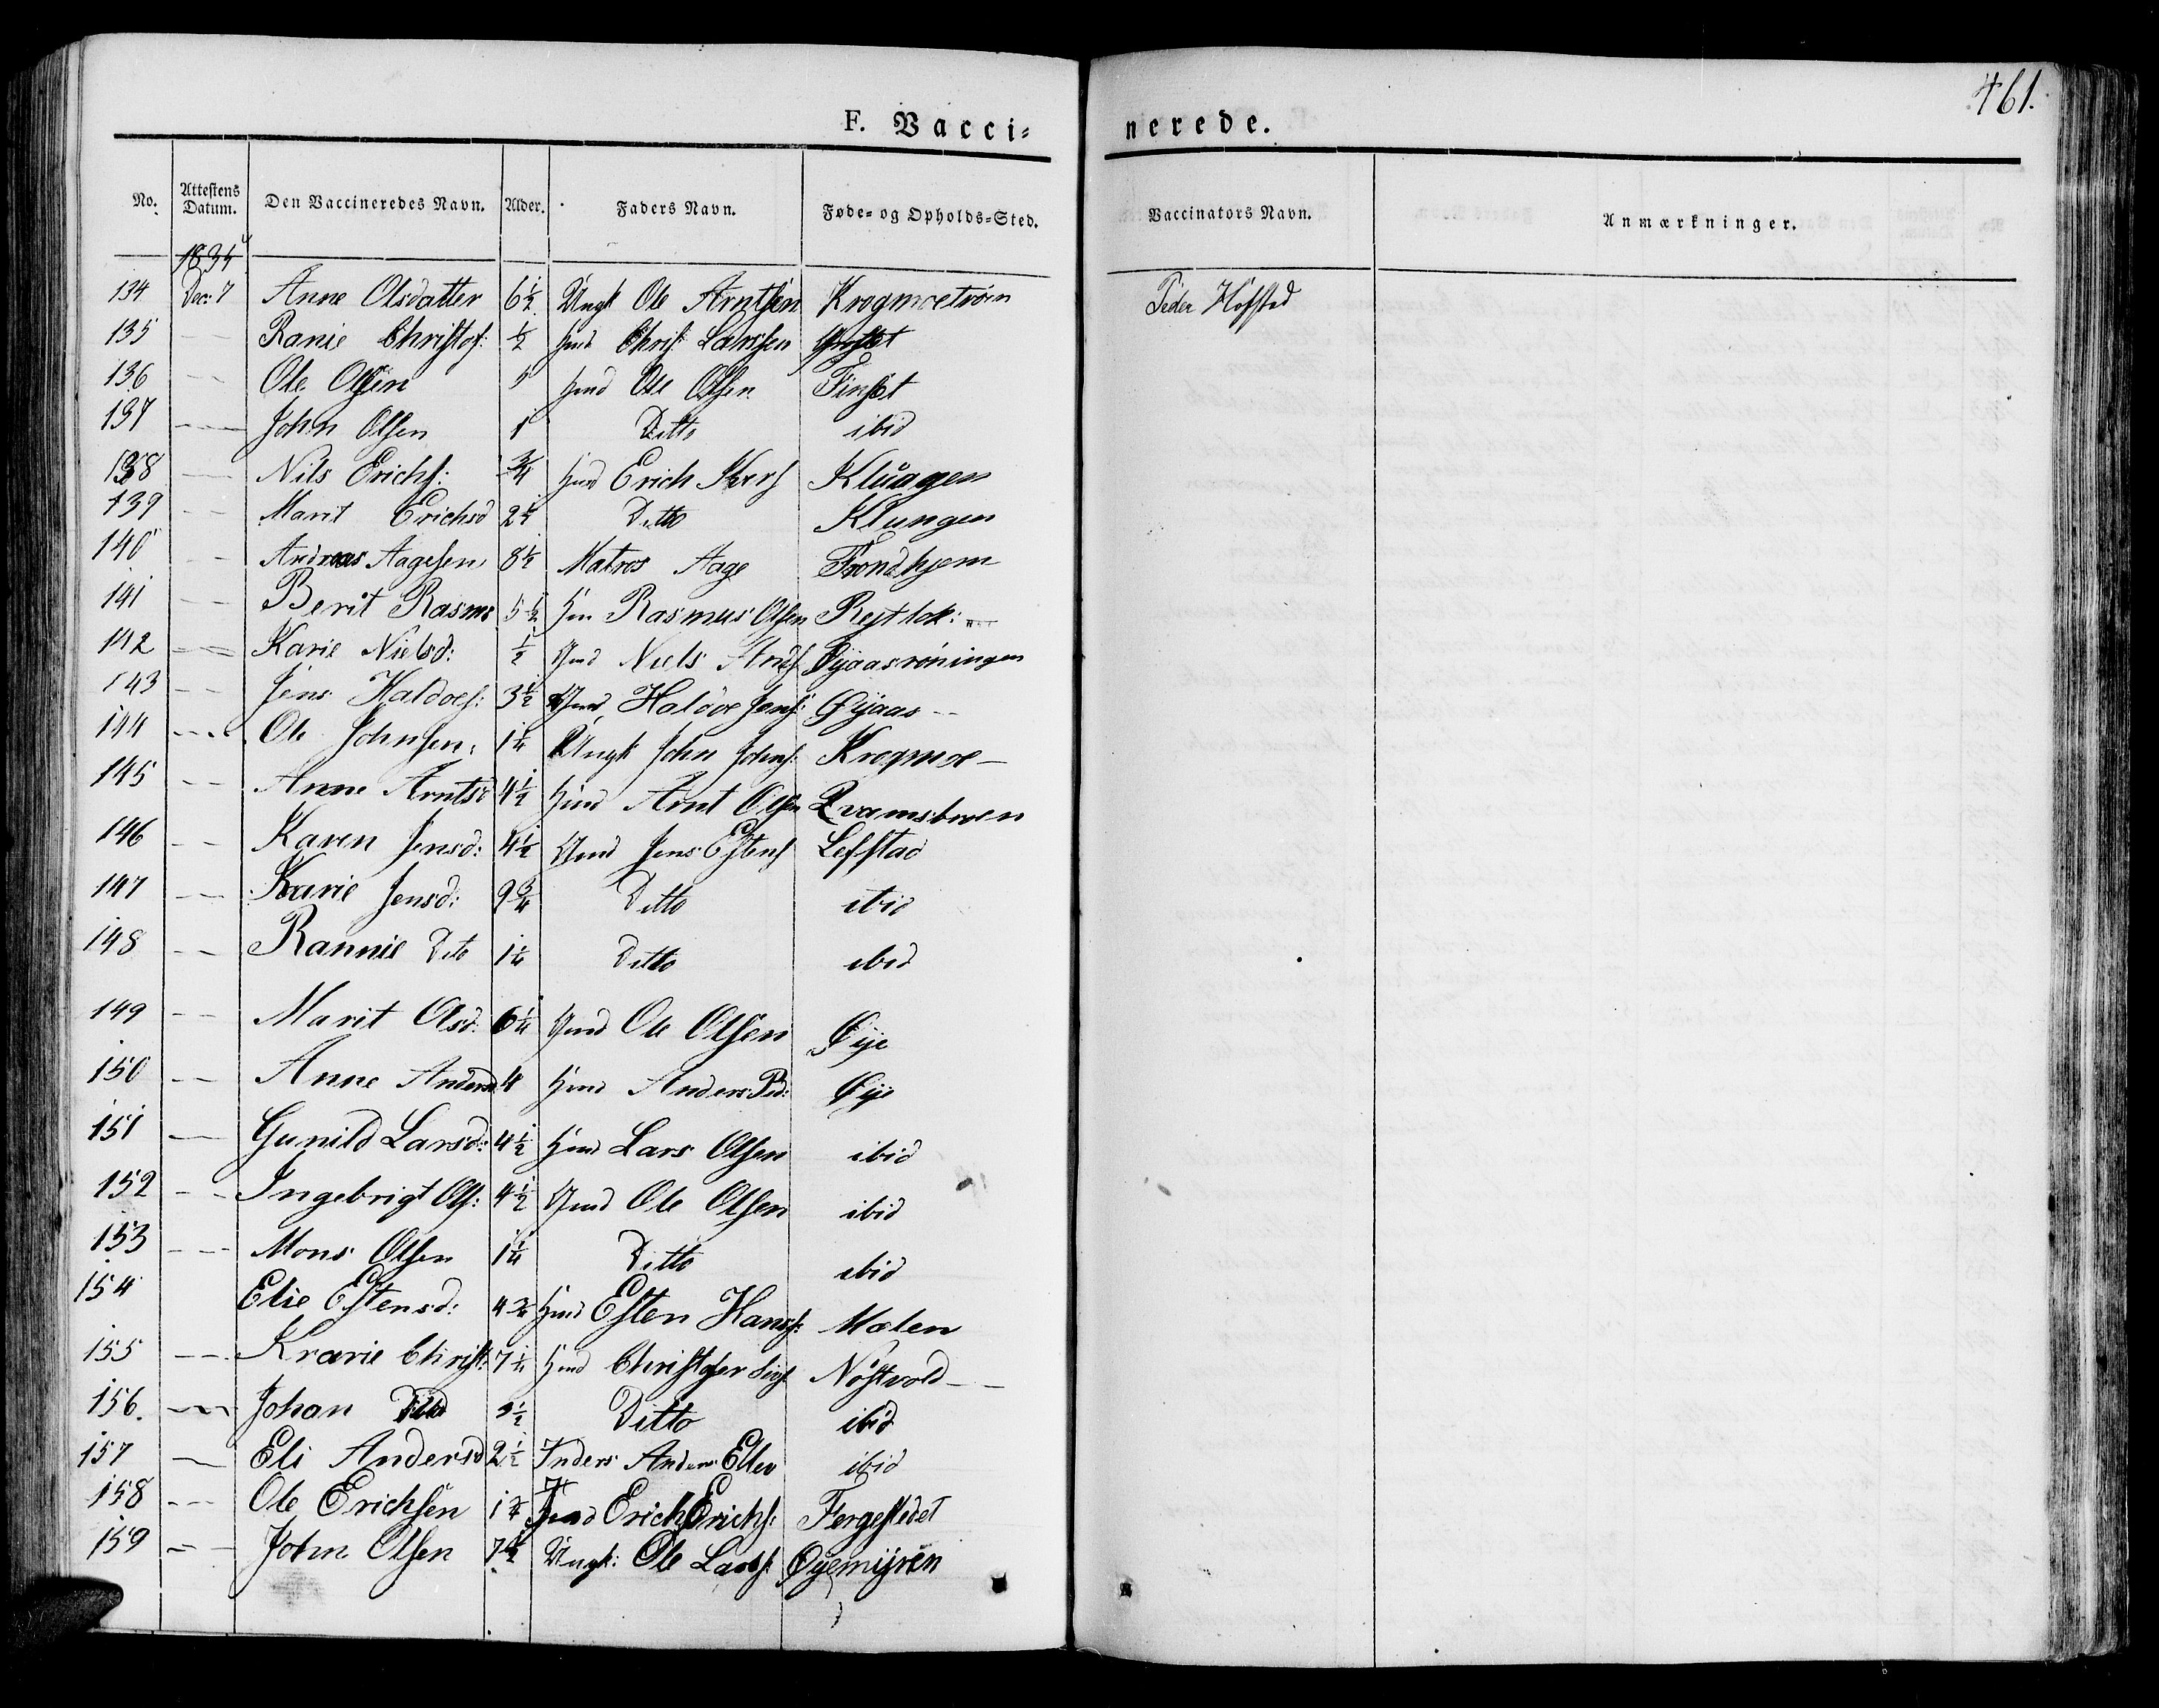 461.
F. Vacci-
nerede.
No. Attestens Datum. Den Vaccineredes Navn. Alder. Faders Navn. Føde- og Opholds-Sted. Vaccinators Navn. Anmærkninger.
1834
134 Dec: 7 Anne Olsdatter 6½ Ungk Ole Arntsen Krogmoetrøen Peder Hofstad
135 — Ranie Christof: ½ Hmd Chris: Larssen
136 — Ole Olsen Hmd Ole Olsen Finset
137 — John Olsen 1 Ditto ibid
138 — Nils Erichs: ¾ Hmd Erich Klungen
139 — Marit Erichsd Ditto Klungen
140 — Andreas Aagesen 8½ Matros Aage Trondhjem
141 — Berit Rasms 5½ Rasmus Olsen
142 — Karie Nielsd: ½ Hmd Niels Øyaasrøningen
143 — Jens Haldoes: 3½ Hmd Haldoe Jens: Øyaas —
144 — Ole Johnsen 1¼ Ungk John Johns: Krogmoe —
145 — Anne Arntsd 4½ Hmd Arnt Olsen
146 — Karen Jensd: 4½ Hmd Jens Estens Lefstad
147 — Karie Jensd: 9¾ Ditto ibid
148 — Rannie Dito 1¼ Ditto ibid
149 — Marit Olsd: 6¼ Hmd Ole Olsen Øye
150 — Anne Andersd 4 Hmd Anders Ped: Øye
151 — Gunild Larsd: 4½ Hmd Lars Olsen ibid
152 — Ingebrigt Ols: 4½ Hmd Ole Olsen ibid
153 — Mons Olsen 1¼ Ditto ibid
154 Elie Estensd: 4¾ Hmd Esten Hans: Mælen
155 — Krarie Christ: 7¼ Hmd Christofer Nøstvold —
156. — Johan Ditto ibid
157 — Eli Andersd 2½ Inders Anders Ellev ibid
158 — Ole Erichsen 1¾ Hmd Erich Erichs: Fergestedet
159 — John Olsen 7½ Ungk: Ole Lars: Øyemyren